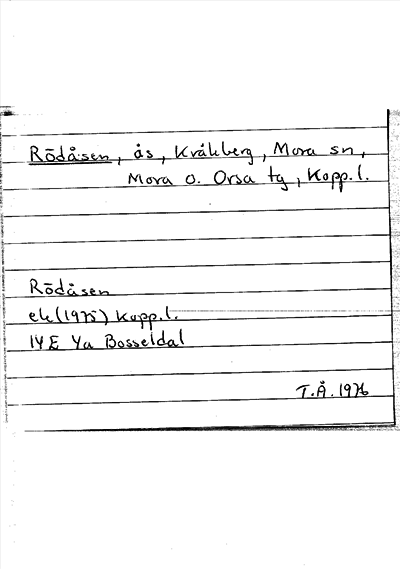 Rödåsen, ås, Kråkberg, Mora sn,
Mora o. Orsa tg, Kopp.l.
Rödåsen
ek (1975) Kopp.l.
14E 4a Bosseldal
T.Å. 1976